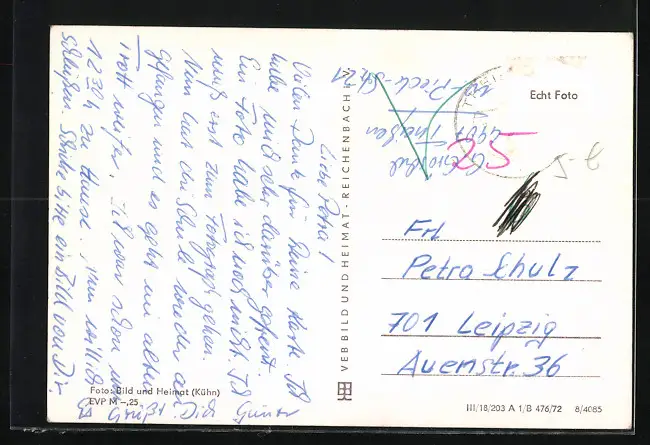 Liebe Petra!
Vielen Dank für Deine Karte. Ich
habe mich sehr darüber gefreut.
Ein Foto habe ich noch nicht. Ich
muß erst zum Fotograf gehen.
Nun hat die Schule wieder an-
gefangen und es geht im alten
Trott weiter. Ich war schon um
12 30 h zu Hause. Nun will ich
schließen. Schicke bitte ein Bild von Dir.
Es grüßt Dich Günter
Foto: Bild und Heimat (Kühn)
EVP M –,25
VEB BILD UND HEIMAT · REICHENBACH i. V.
Echt Foto
25
Frl
Petra Schulz
701 Leipzig
Auenstr. 36
III/18/203 A 1/B 476/72 8/4085